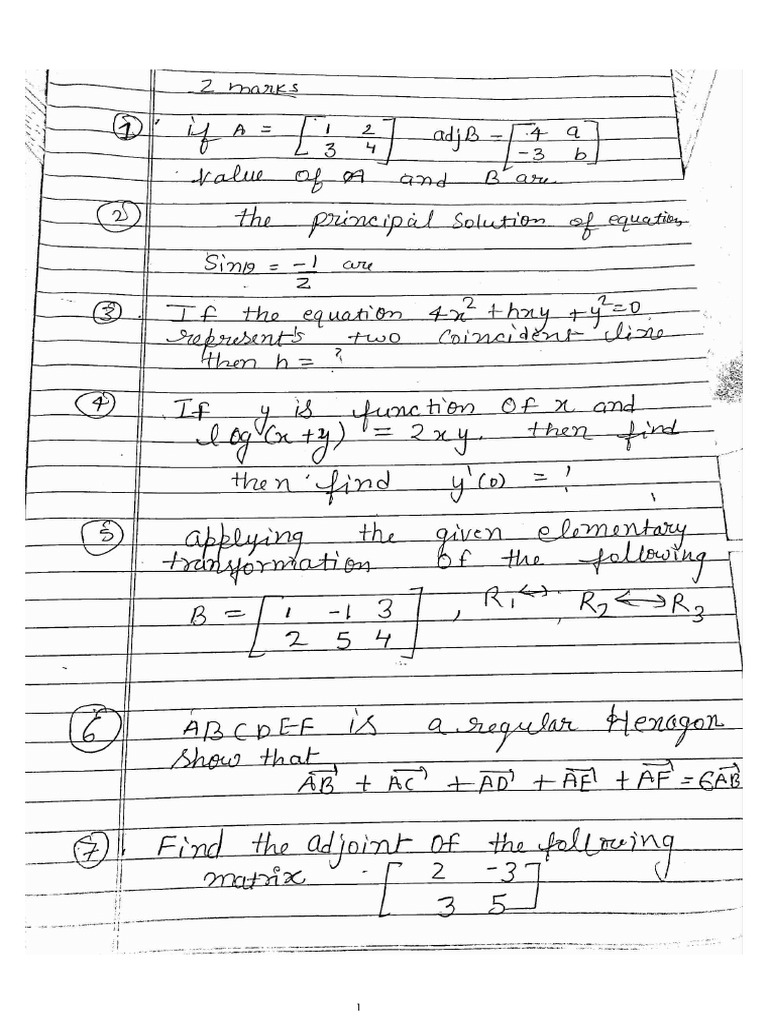 2 marks
① if A = [1 2 adjB = [4 a
3 4] -3 b]
value of A and B are
② the principal solution of equation
Sinθ = -1/2 are
③ If the equation 4x² + hxy + y² = 0
represent's two coincident line
then h = ?
④ If y is function of x and
log(x+y) = 2xy. then find
then find y'(0) = ?
⑤ applying the given elementary
transformation of the following
B = [1 -1 3 , R₁↔ R₂↔R₃
2 5 4]
⑥ ABCDEF is a regular Hexagon
show that
AB + AC + AD + AE + AF = 6AB
⑦ Find the adjoint of the following
matrix [2 -3
3 5]
1